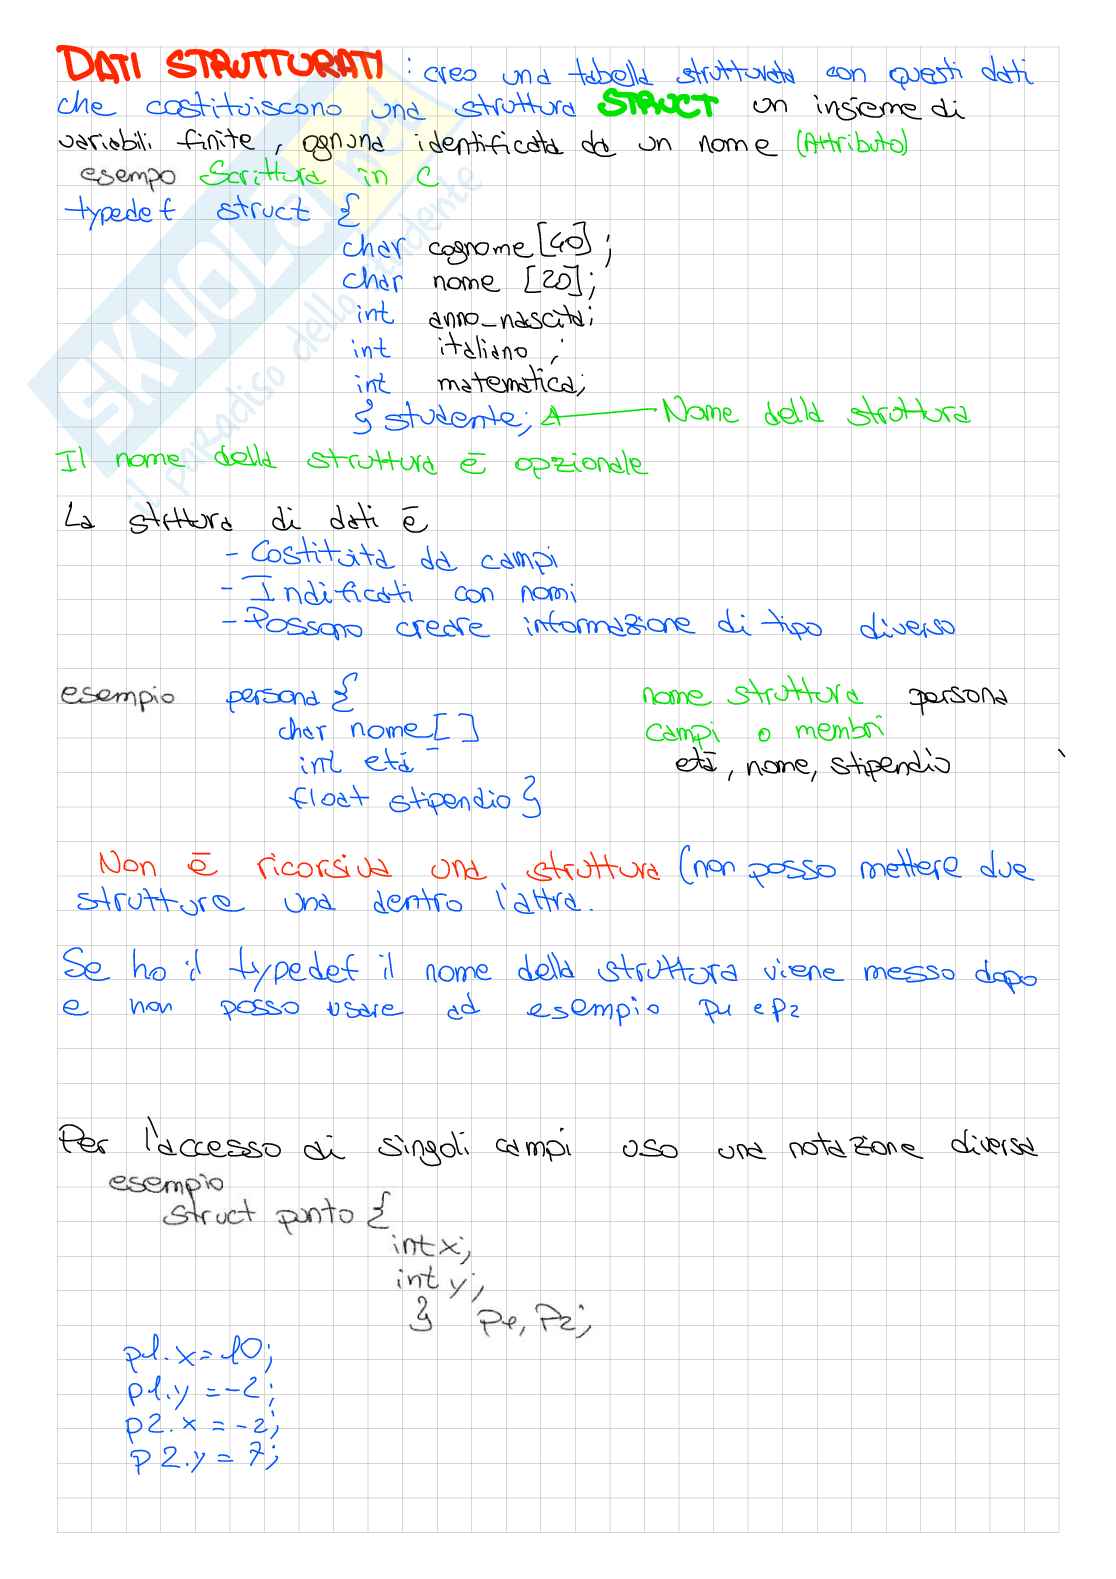 DATI STRUTTURATI : creo una tabella strutturata con questi dati
che costituiscono una struttura STRUCT un insieme di
variabili finite, ognuna identificata da un nome (Attributo)
esempo Scrittura in C
typedef struct {
char cognome [40];
char nome [20];
int anno_nascita;
int italiano;
int matematica;
} studente; Nome della struttura
Il nome della struttura è opzionale
La struttura di dati è
- Costituita da campi
- Indificati con nomi
- Possono creare informazione di tipo diverso
esempio persona { nome struttura persona
char nome [ ] campi o membri
int età età, nome, stipendio
float stipendio }
Non è ricorsiva una struttura (non posso mettere due
strutture una dentro l'altra.
Se ho il typedef il nome della struttura viene messo dopo
e non posso usare ad esempio p1 e p2
Per l'accesso di singoli campi uso una notazione diversa
esempio
struct punto {
int x;
int y;
} p1, p2;
p1.x=10;
p1.y=-2;
p2.x=-2;
p2.y=7;
SKUOLA.net
il paradiso dello studente